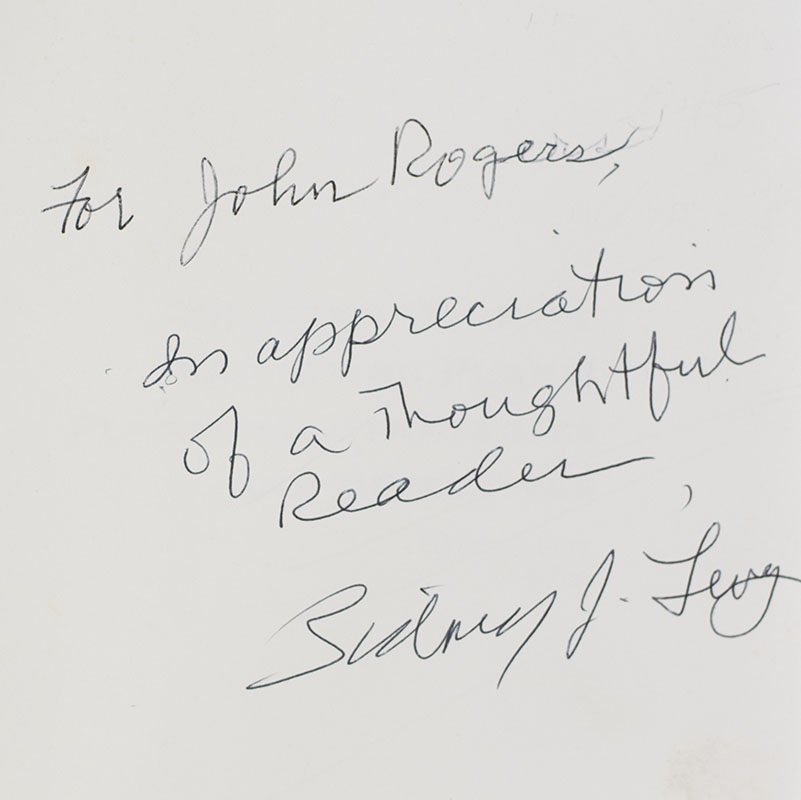 For John Rogers,
In appreciation
of a Thoughtful
Reader,
Sidney J. Levy